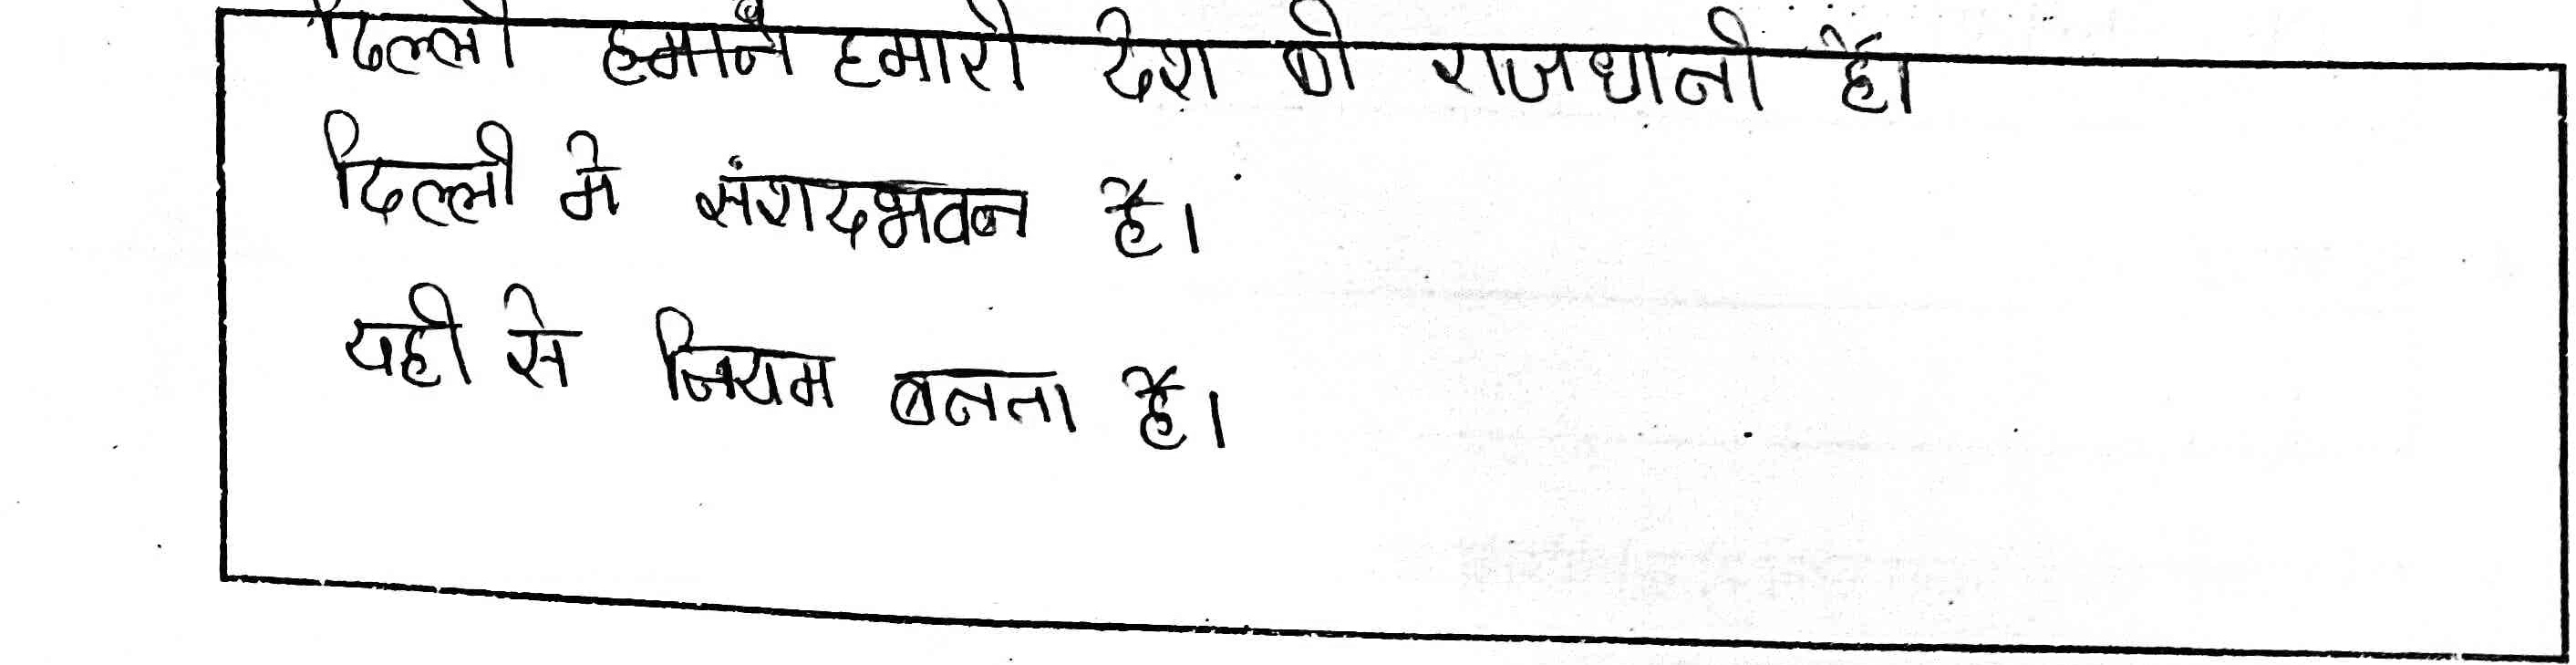 दिल्ली हमाने हमारी देश की राजधानी है।
दिल्ली मे संशदभवन है।
यही से नियम बनता है।